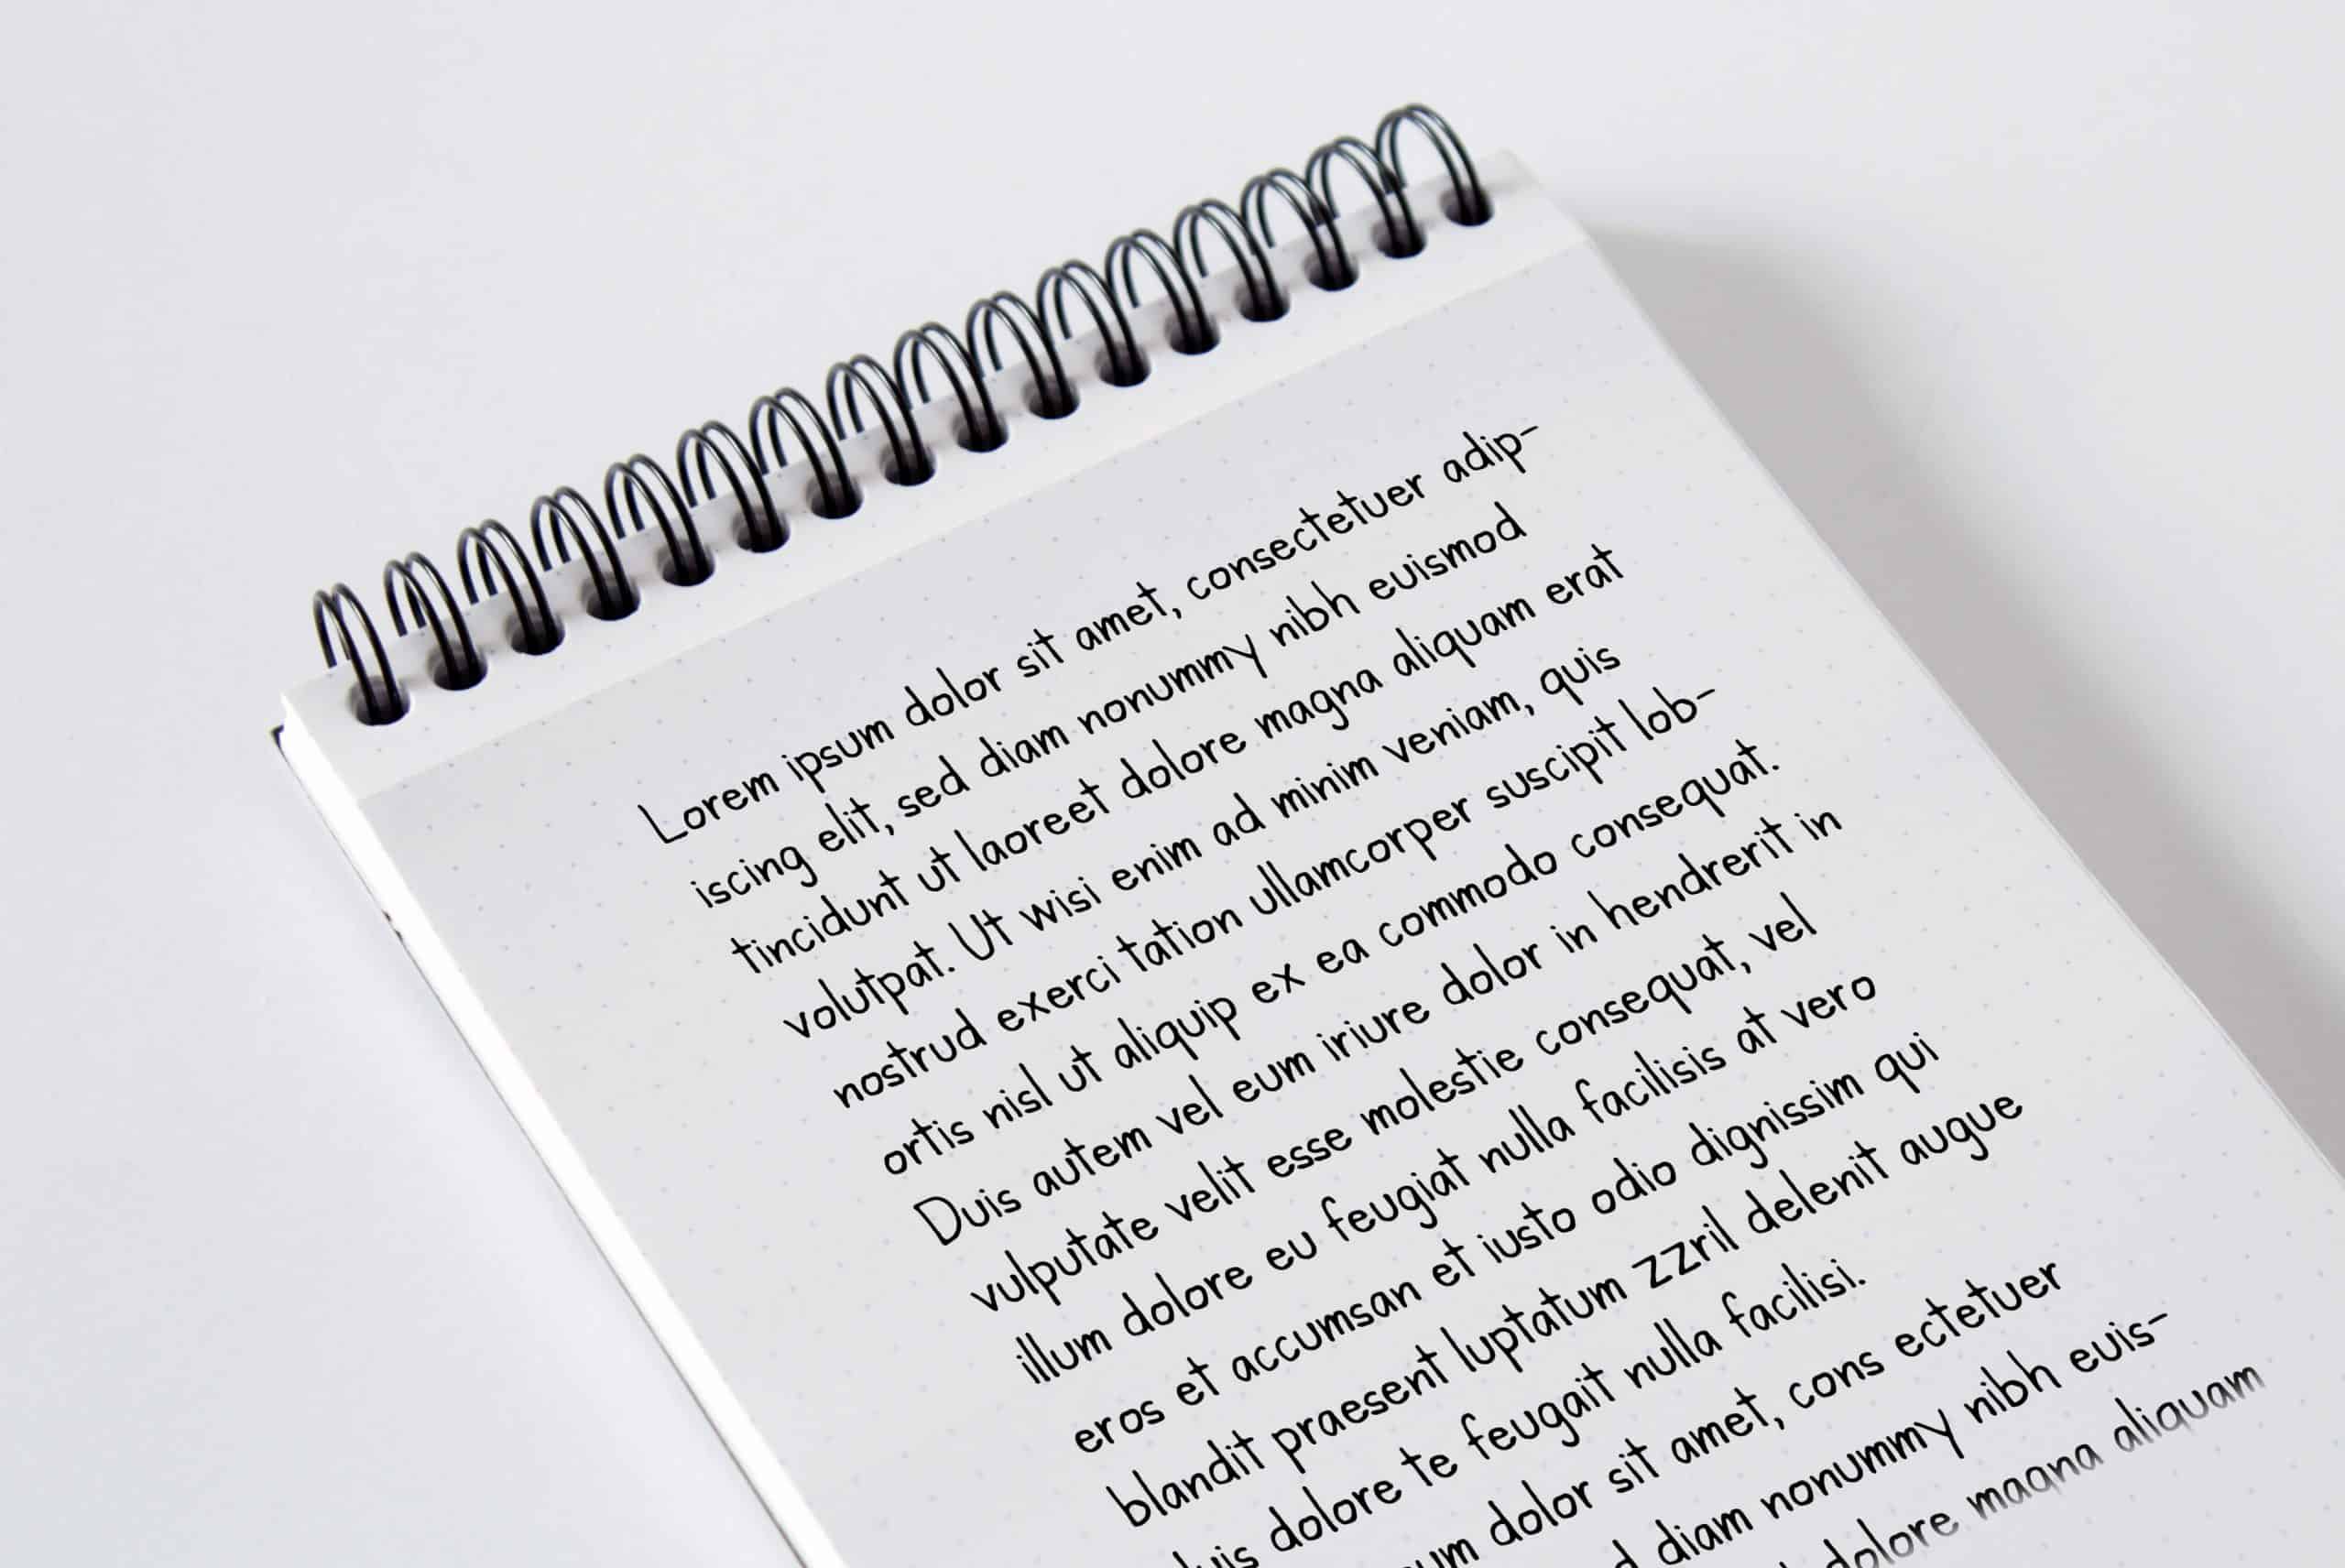 Lorem ipsum dolor sit amet, consectetuer adip-
iscing elit, sed diam nonummy nibh euismod
tincidunt ut laoreet dolore magna aliquam erat
volutpat. Ut wisi enim ad minim veniam, quis
nostrud exerci tation ullamcorper suscipit lob-
ortis nisl ut aliquip ex ea commodo consequat.
Duis autem vel eum iriure dolor in hendrerit in
vulputate velit esse molestie consequat, vel
illum dolore eu feugiat nulla facilisis at vero
eros et accumsan et iusto odio dignissim qui
blandit praesent luptatum zzril delenit augue
dolore te feugait nulla facilisi.
dolor sit amet, cons ectetuer
diam nonummy nibh euis-
dolore magna aliquam